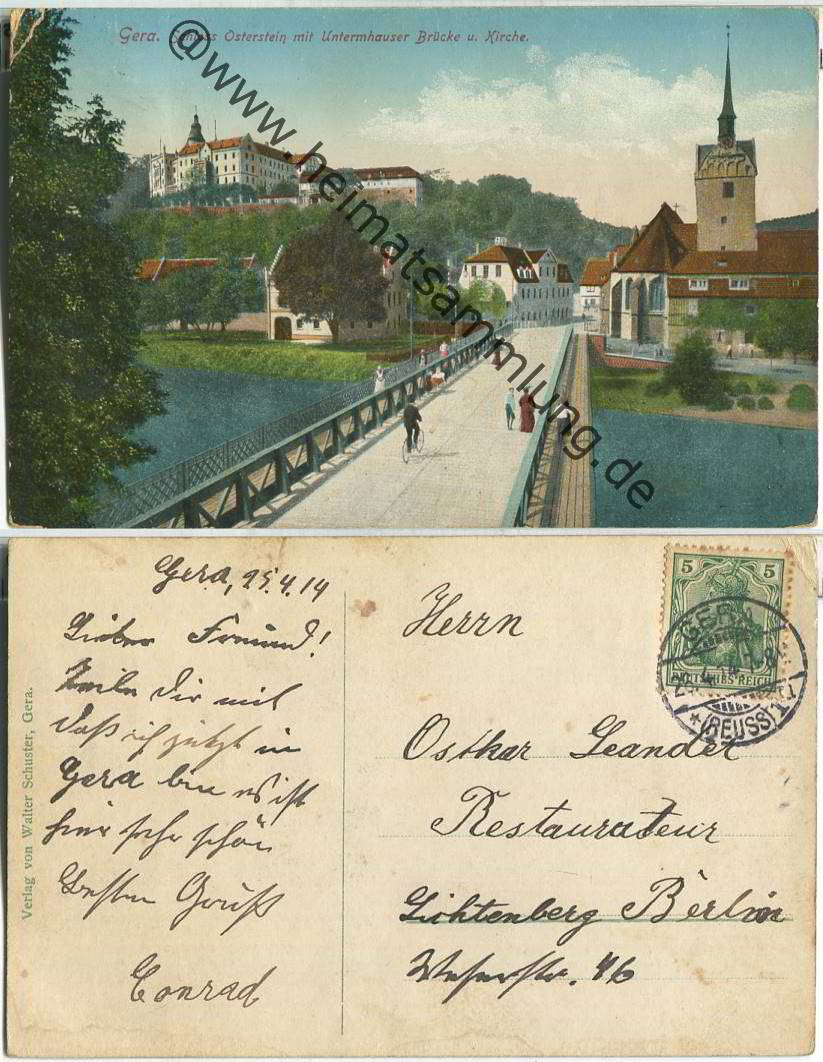 Gera. Schloss Osterstein mit Untermhauser Brücke u. Kirche.
@www.heimatsammlung.de
Gera, 25.4.14
Lieber Freund!
Teile Dir mit
daß ich jetzt in
Gera bin es ist
hier sehr schön
Besten Gruß
Conrad
Verlag von Walter Schuster, Gera.
5 5
DEUTSCHES REICH
GERA
(REUSS)
Herrn
Osthar Leander
Restaurateur
Lichtenberg Berlin
Weserstr. 46